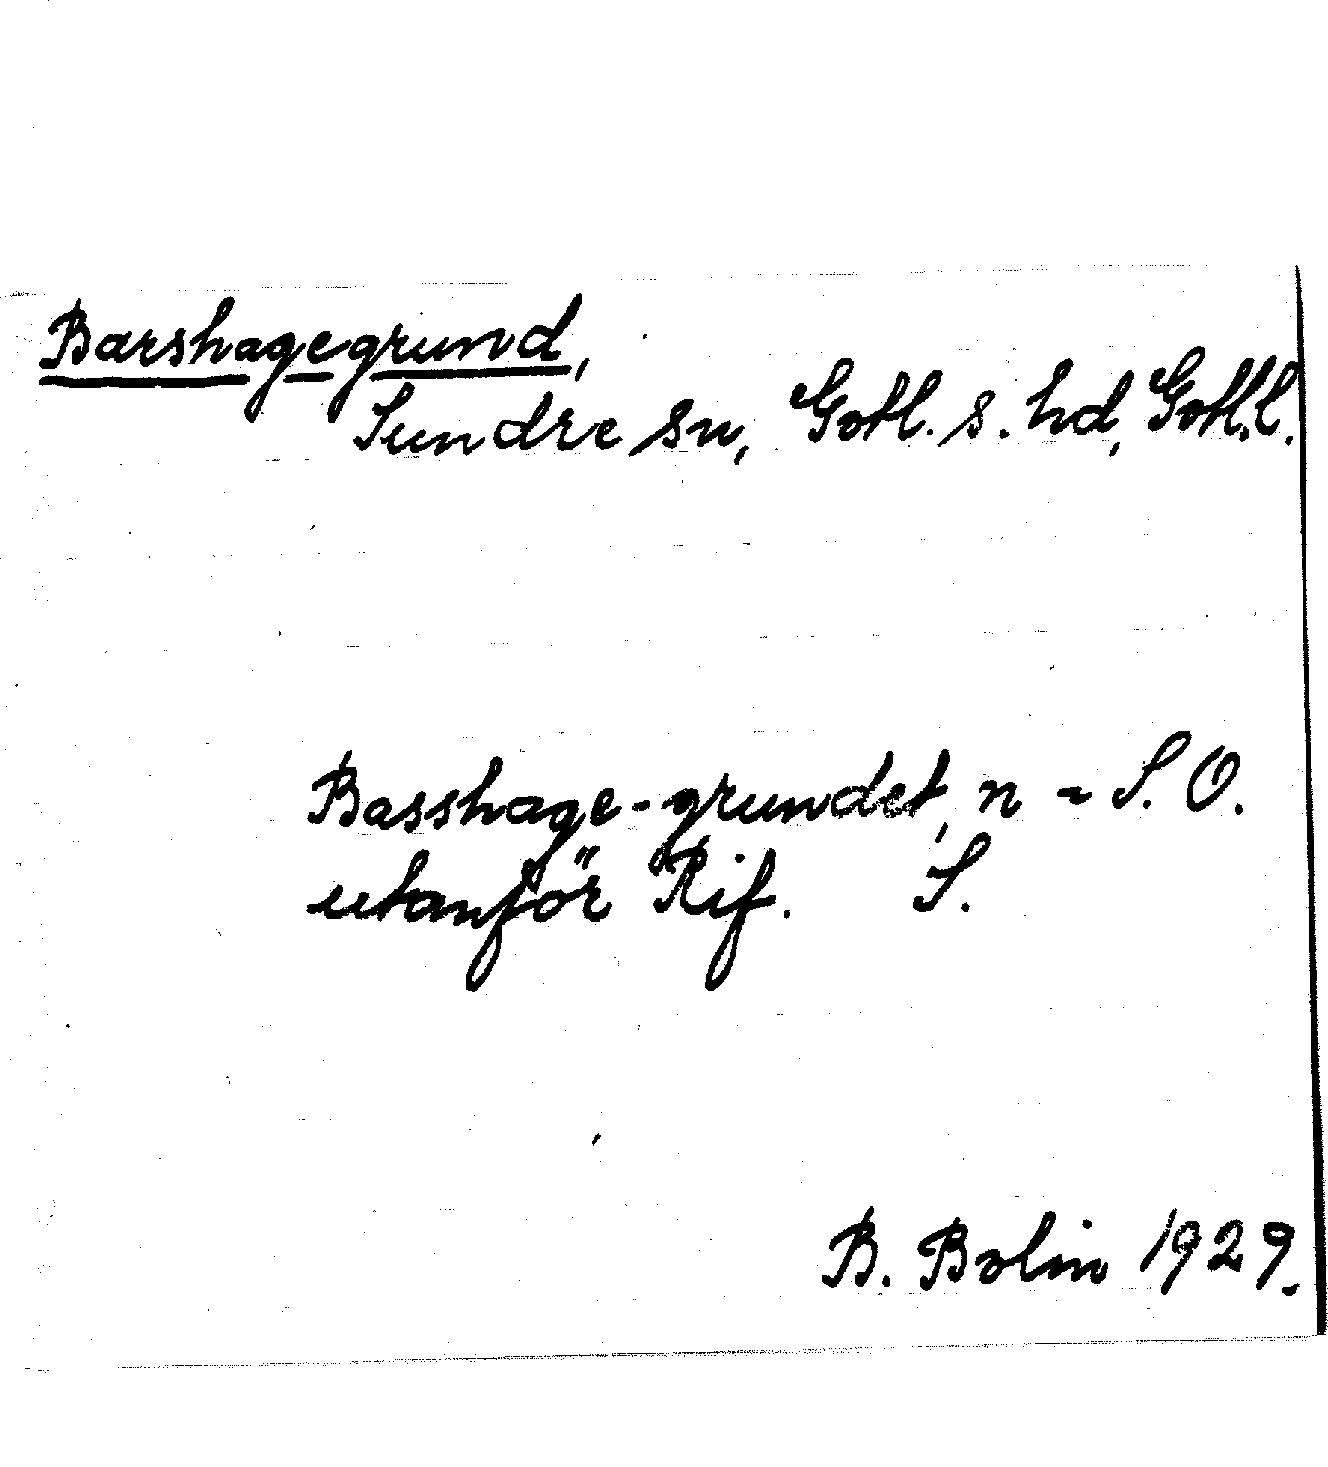 Barshagegrund,
Sundre sn, Gotl. s. hd, Gotl.l.
Basshage-grundet, n = S. O.
utanför Rif. S.
B. Bolin 1929.